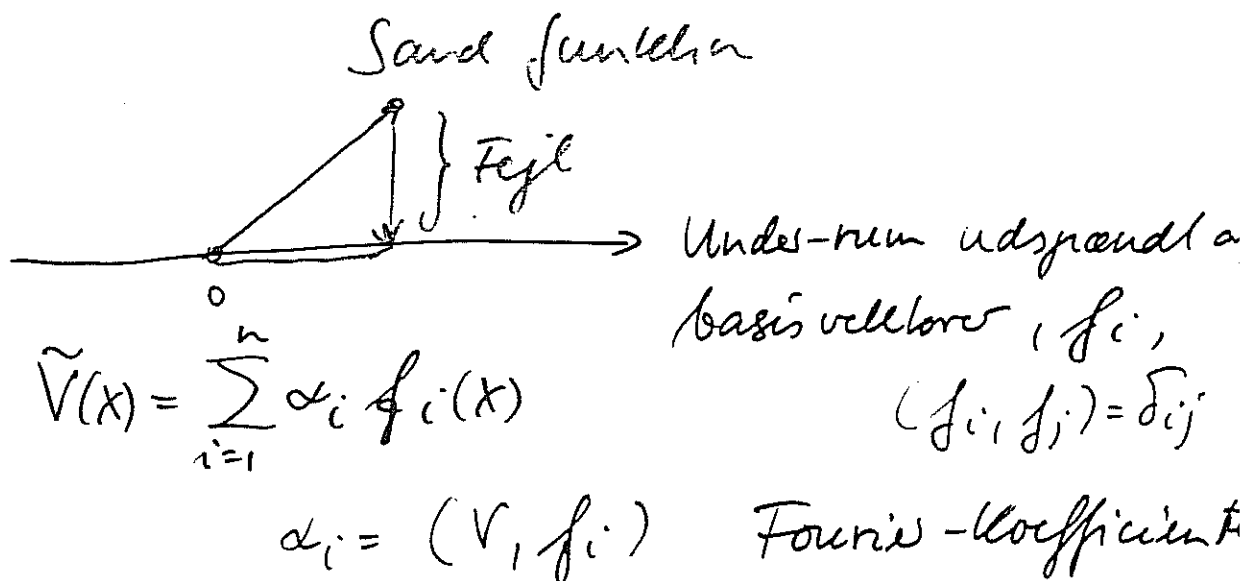 Sand funktion
} Fejl
Under-rum udspændt a
0
basisvektorer, fi,
Ṽ(X) = ∑_{i=1}^{n} αi fi(X)
(fi, fj) = δij
αi = (V, fi) Fourier-Koefficient